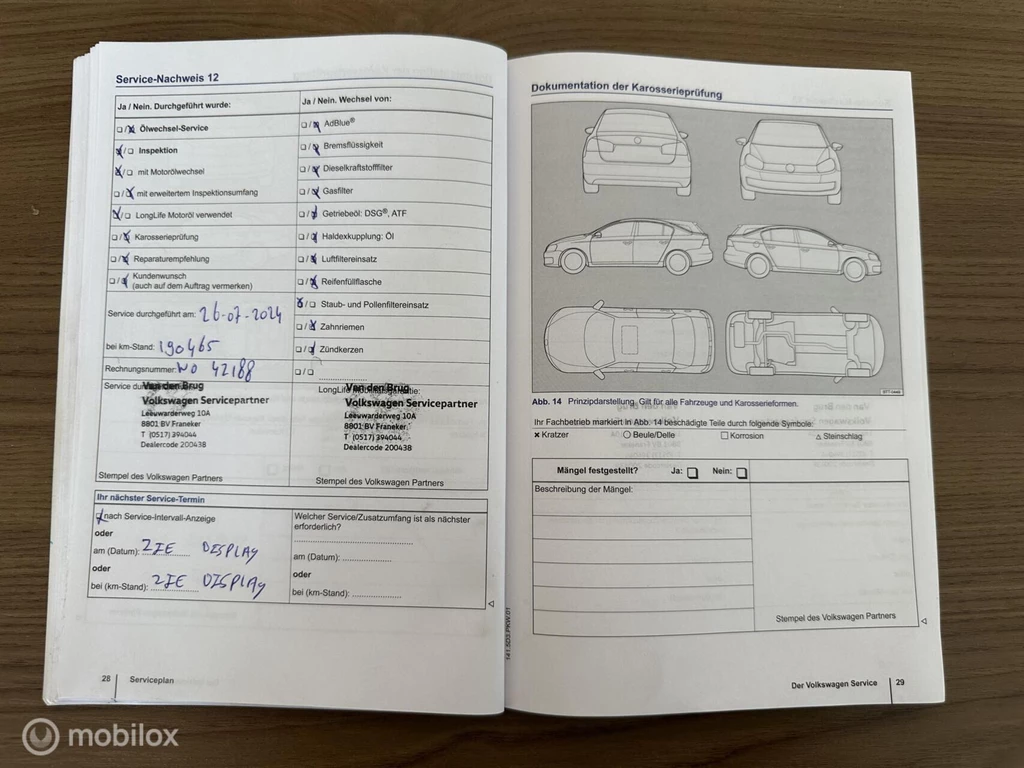 Service-Nachweis 12
Ja / Nein. Durchgeführt wurde:
Ölwechsel-Service
Inspektion
mit Motorölwechsel
mit erweitertem Inspektionsumfang
LongLife Motoröl verwendet
Karosserieprüfung
Reparaturempfehlung
Kundenwunsch
(auch auf dem Auftrag vermerken)
Service durchgeführt am: 26-07-2024
bei km-Stand: 190465
Rechnungsnummer: WO 42188
Service
Van den Brug
Volkswagen Servicepartner
Leeuwarderweg 10A
8801 BV Franeker
T (0517) 394044
Dealercode 20043B
Stempel des Volkswagen Partners
Ja / Nein. Wechsel von:
AdBlue®
Bremsflüssigkeit
Dieselkraftstofffilter
Gasfilter
Getriebeöl: DSG®, ATF
Haldexkupplung: Öl
Luftfiltereinsatz
Reifenfüllflasche
Staub- und Pollenfiltereinsatz
Zahnriemen
Zündkerzen
Van den Brug
Volkswagen Servicepartner
Leeuwarderweg 10A
8801 BV Franeker
T (0517) 394044
Dealercode 20043B
Stempel des Volkswagen Partners
Ihr nächster Service-Termin
nach Service-Intervall-Anzeige
oder
am (Datum): ZIE DISPLAY
oder
bei (km-Stand): ZIE DISPLAY
Welcher Service/Zusatzumfang ist als nächster
erforderlich?
am (Datum):
oder
bei (km-Stand):
28 Serviceplan
141.5D3.PKW.01
Dokumentation der Karosserieprüfung
Abb. 14 Prinzipdarstellung. Gilt für alle Fahrzeuge und Karosserieformen.
Ihr Fachbetrieb markiert in Abb. 14 beschädigte Teile durch folgende Symbole:
× Kratzer ○ Beule/Delle □ Korrosion △ Steinschlag
Mängel festgestellt? Ja: Nein:
Beschreibung der Mängel:
Stempel des Volkswagen Partners
Der Volkswagen Service 29
mobilox